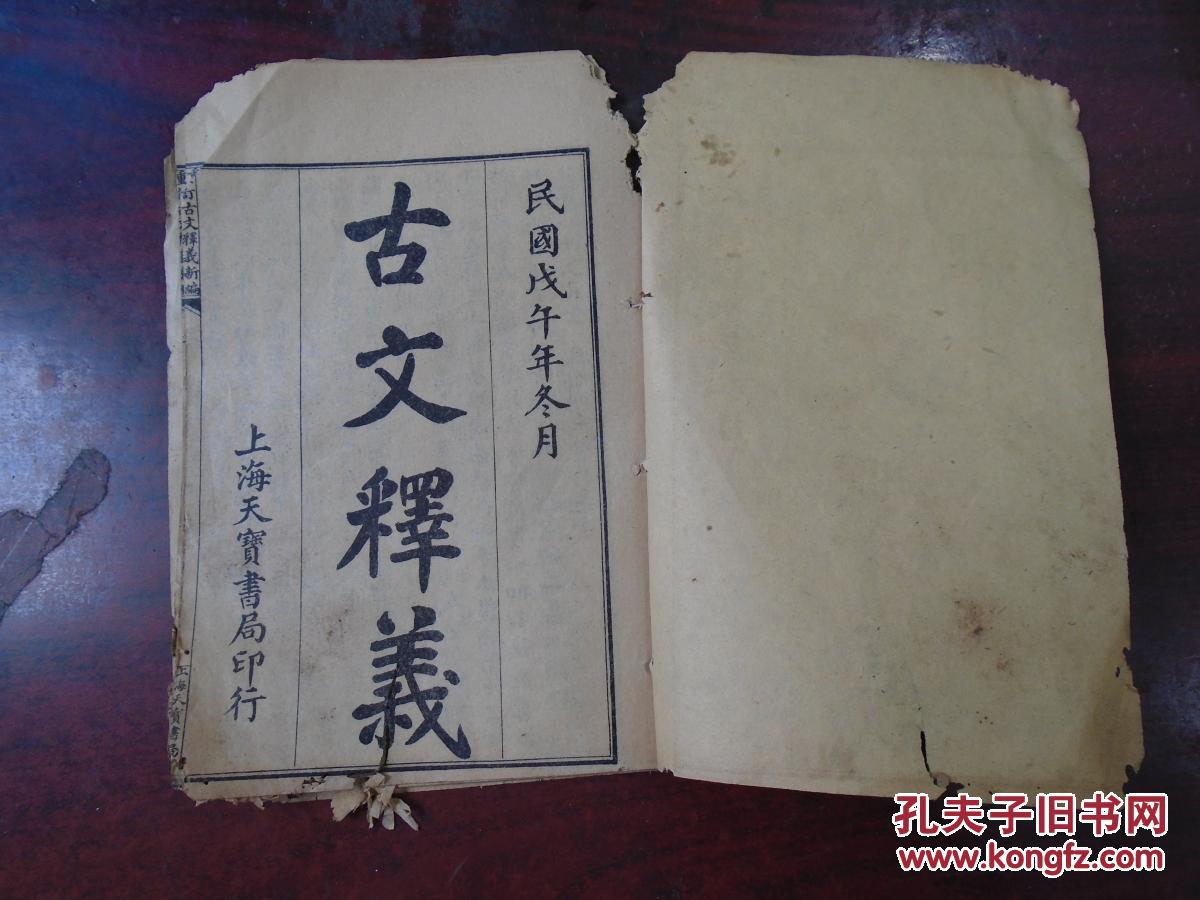 民國戊午年冬月
古文釋義
上海天寶書局印行
重訂古文釋義新編
上海天寶書局
孔夫子旧书网
www.kongfz.com